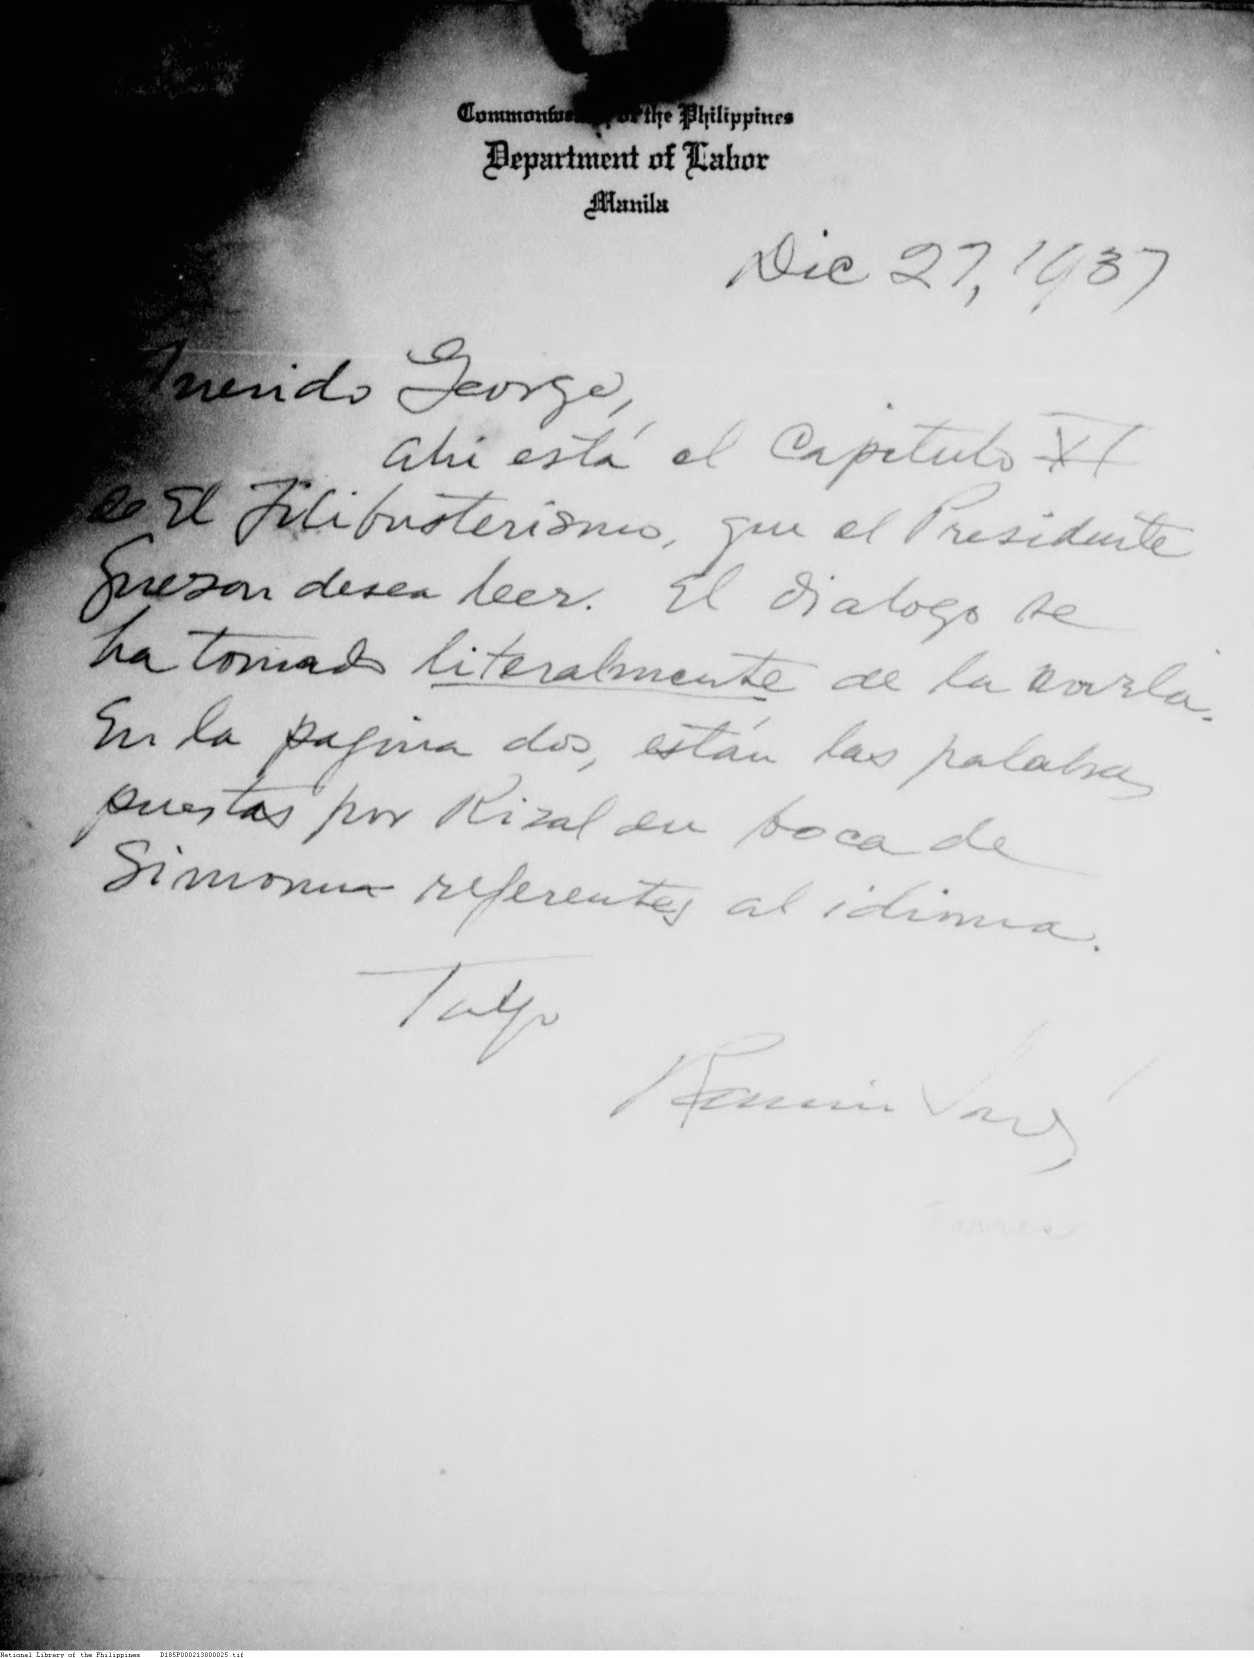 Commonwealth of the Philippines
Department of Labor
Manila
Dic 27, 1937
Querido George,
Ahi está el Capitulo XI
de El Filibusterismo, que el Presidente
Quezon desea leer. El dialogo se
ha tomado literalmente de la novela.
En la pagina dos, están las palabras
puestas por Rizal en boca de
Simoun referentes al idioma.
Tuyo
Ramon
National Library of the Philippines D185P000213800025.tif